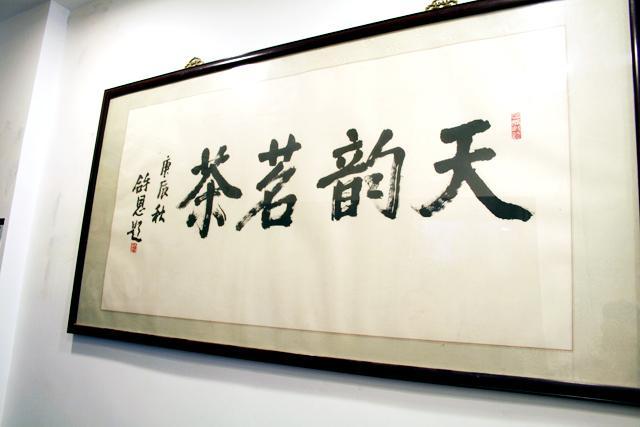 天韵茗茶
庚辰秋
啟恩题